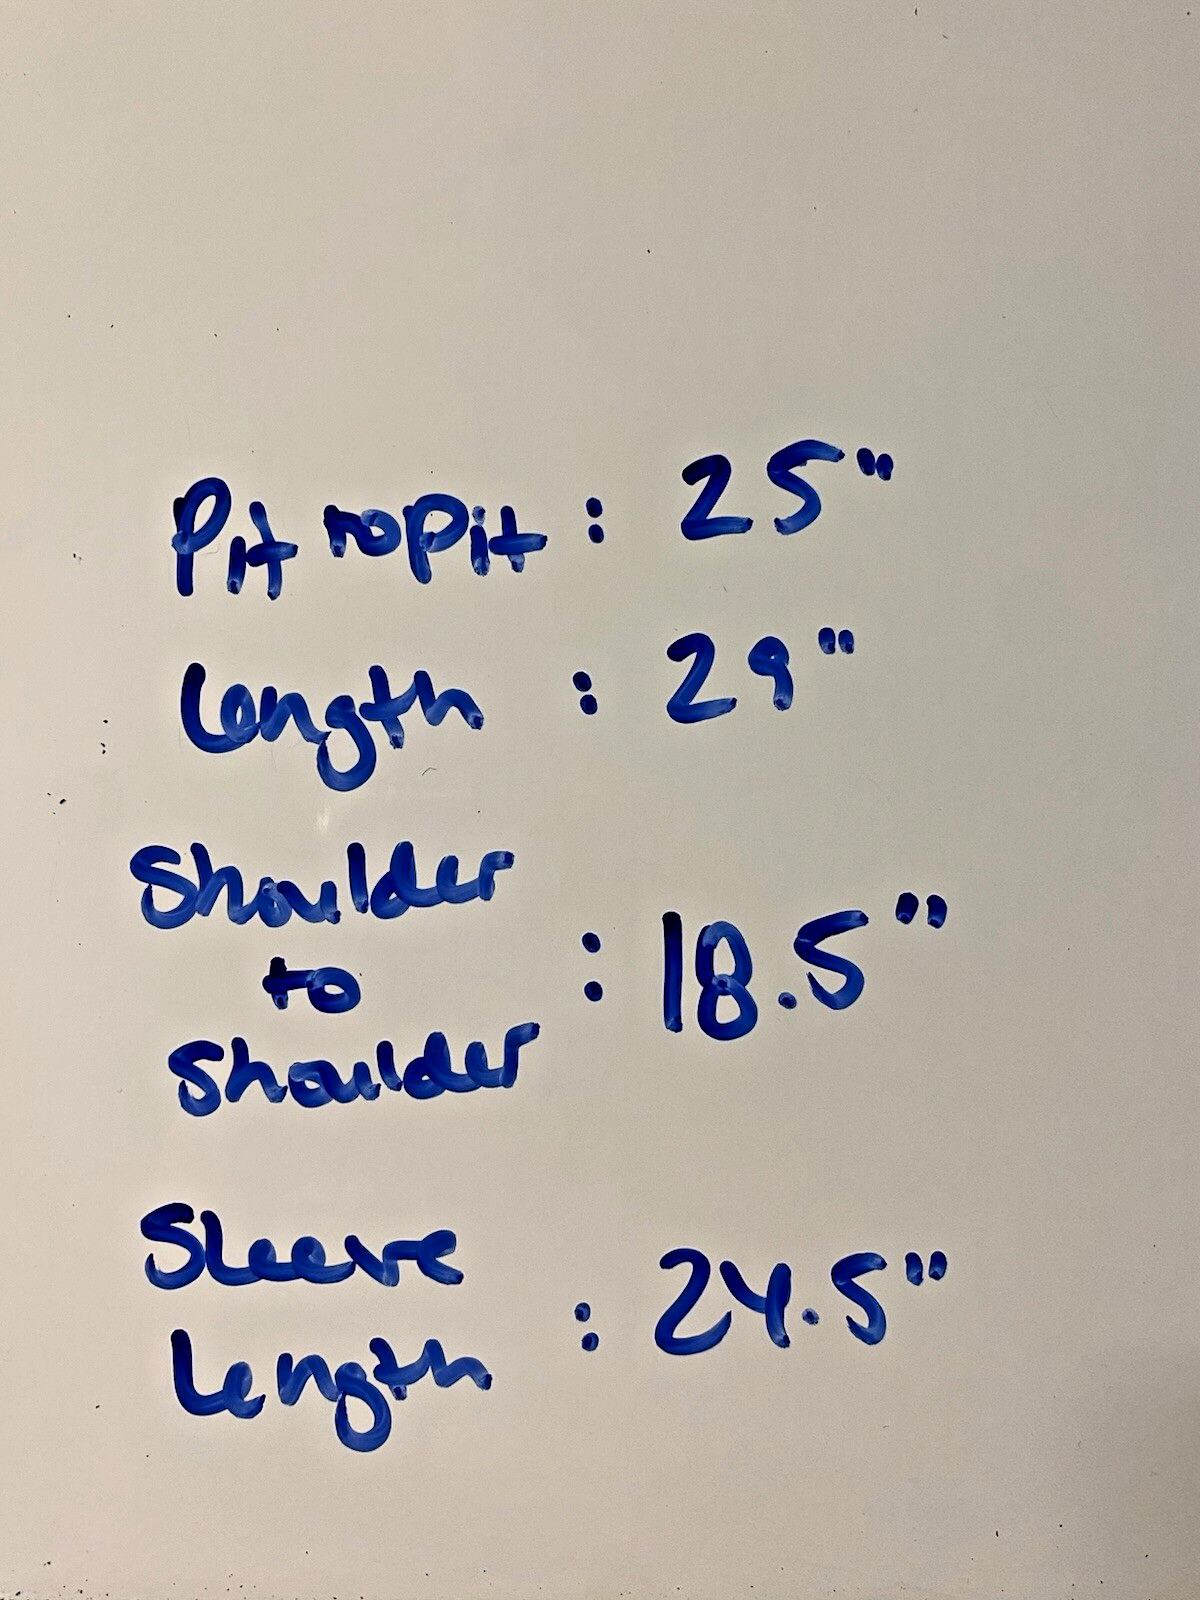 Pit to Pit : 25"
Length : 29"
Shoulder
to
Shoulder : 18.5"
Sleeve
Length : 24.5"